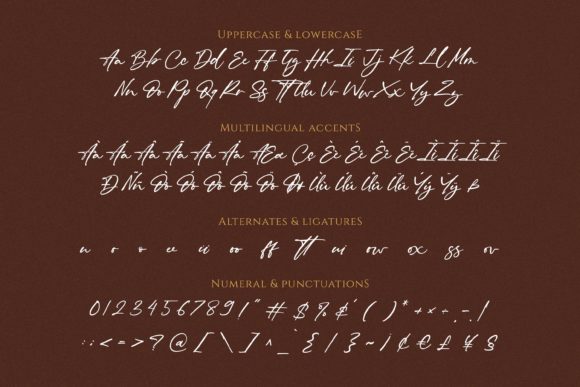 Uppercase & lowercase
Aa Bb Cc Dd Ee Ff Gg Hh Ii Jj Kk Ll Mm
Nn Oo Pp Qq Rr Ss Tt Uu Vv Ww Xx Yy Zz
Multilingual accents
Àà Áá Ââ Ãã Ää Åå Ææ Çç Èè Éé Êê Ëë Ìì Íí Îî Ïï
Ðð Ññ Òò Óó Ôô Õõ Öö Øø Ùù Úú Ûû Üü Ýý Ÿÿ ß
Alternates & ligatures
ee ff tt ss
Numeral & punctuations
0 1 2 3 4 5 6 7 8 9 ' " # $ % & ' ( ) * + × ÷ - . , !
: ; < = > ? @ [ \ ] ^ _ ` { | } ~ ¡ ¢ € £ ¥ §